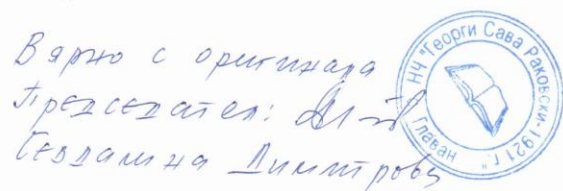 Вярно с оригинала
Председател:
Севдалина Димитрова
НЧ "Георги Сава Раковски-1921 г"
Главан